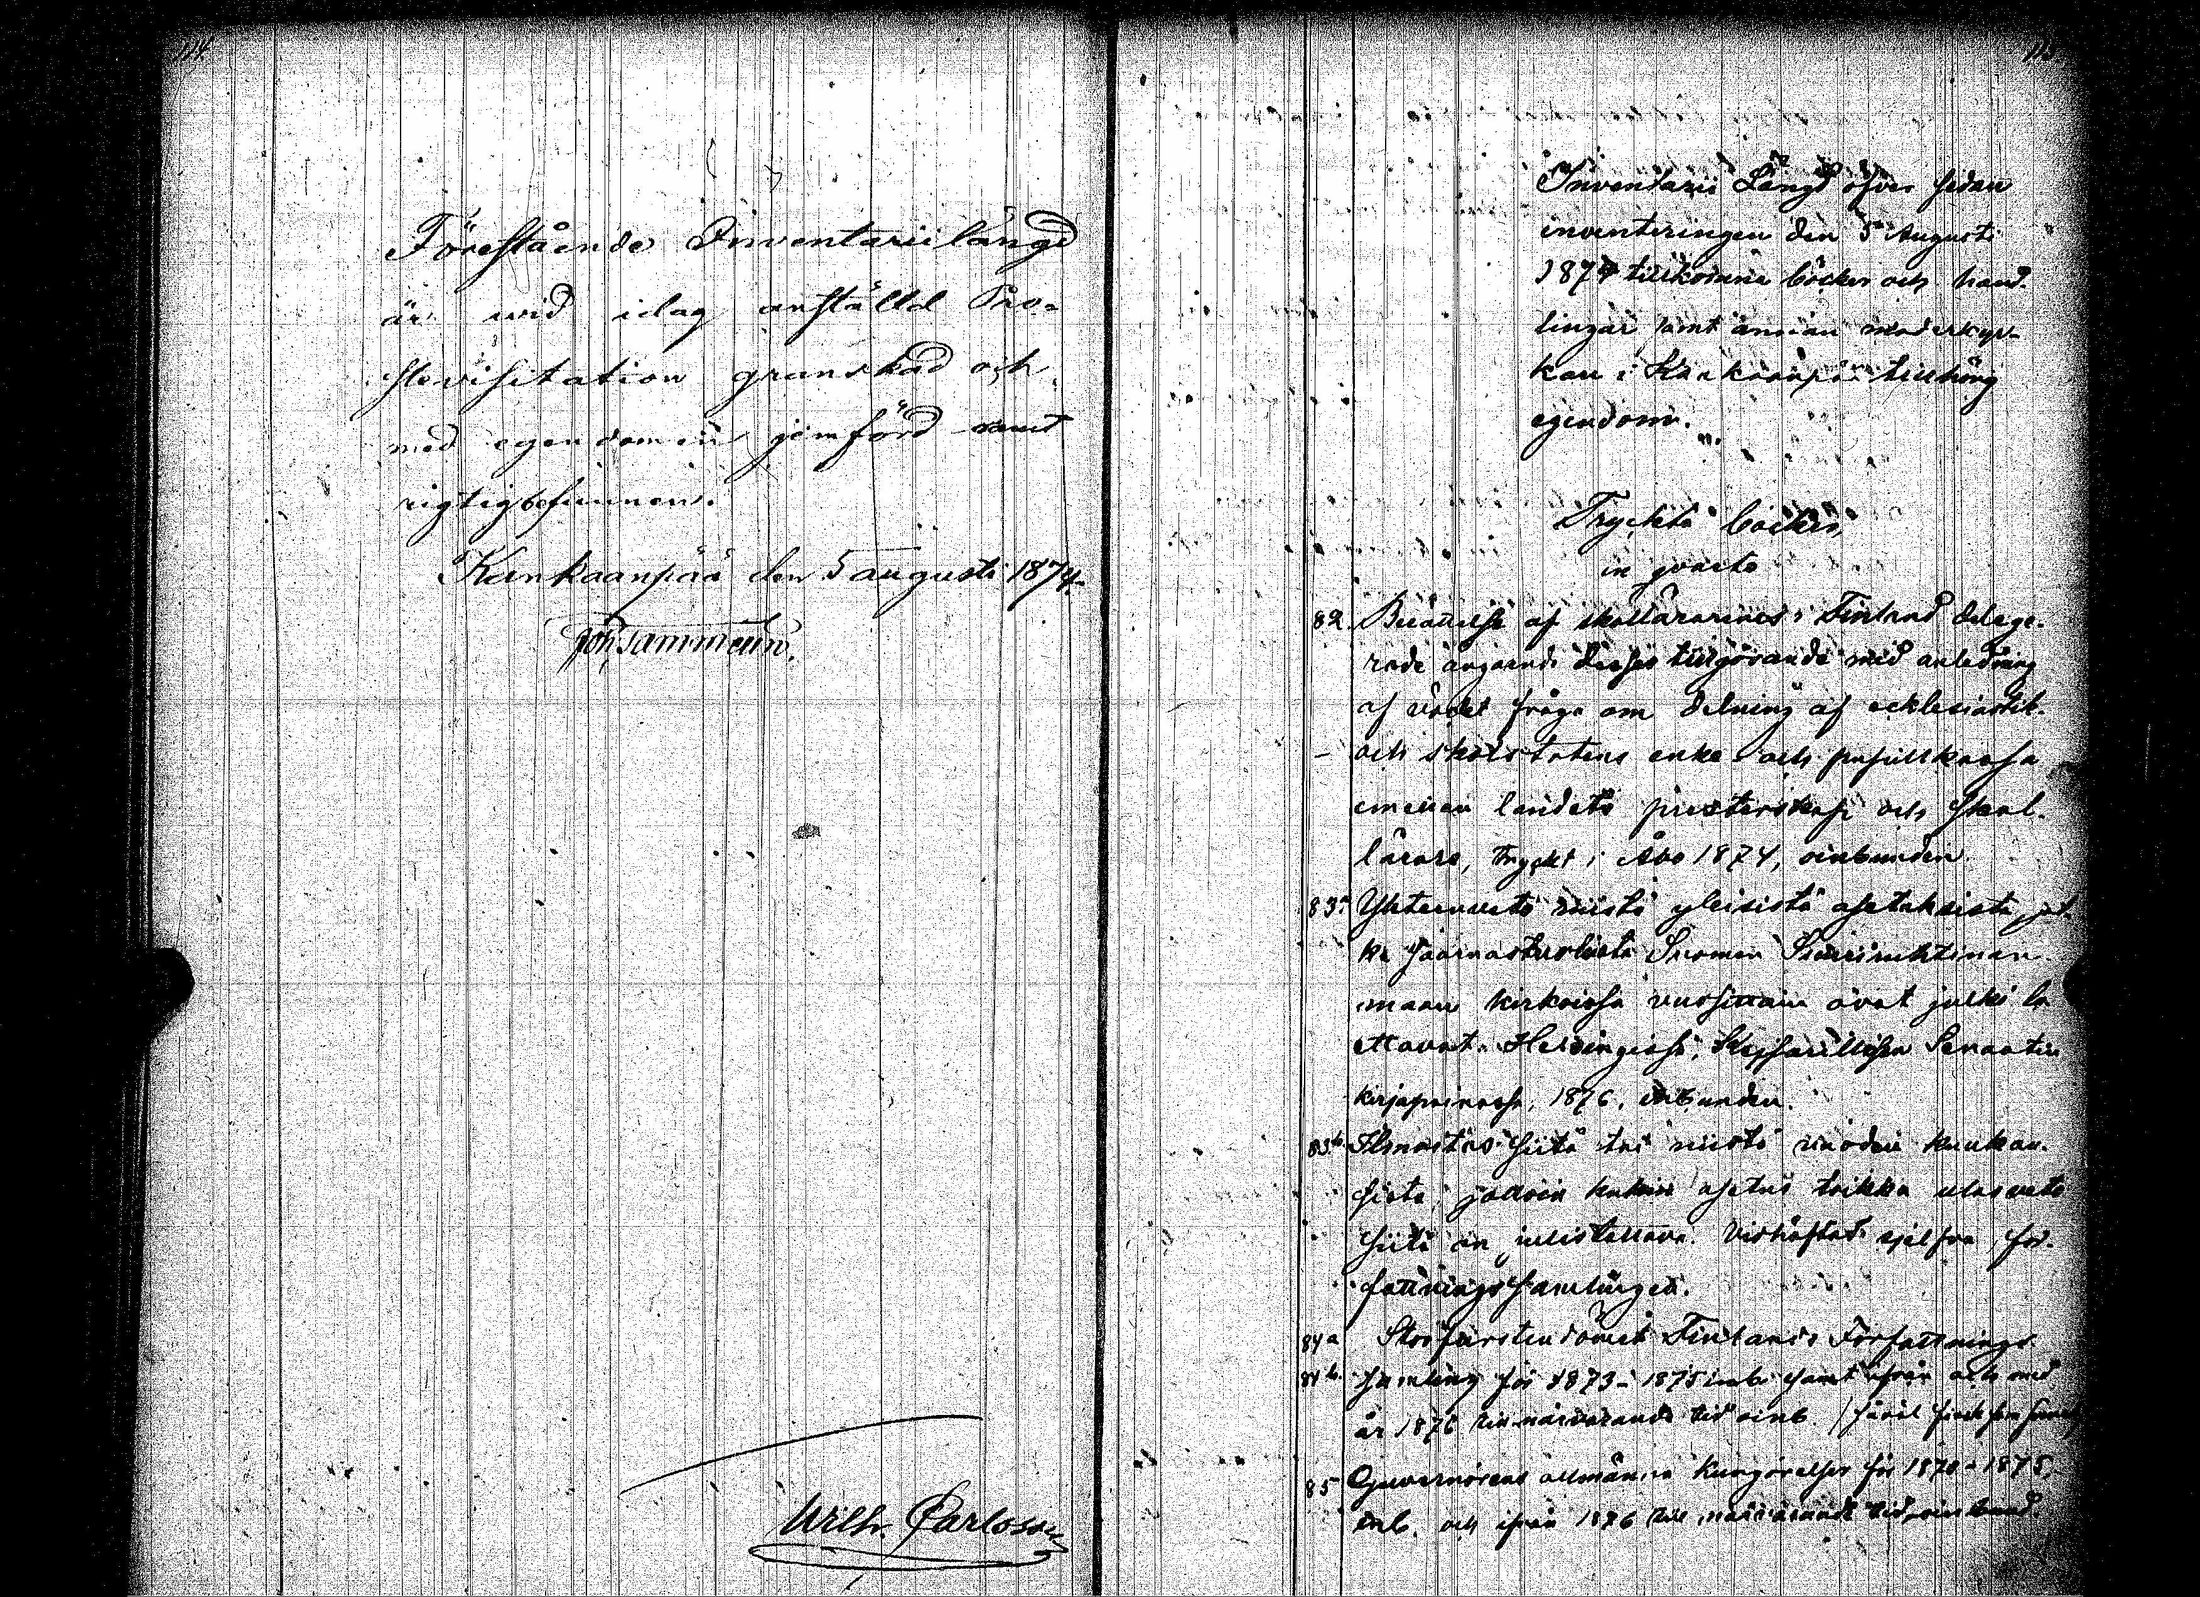 114.
Förestående Inventarii längd
är wid idag anställd Pro-
stevisitation granskad och
med egendomen jämförd samt
rigtig befunnen.
Kankaanpää den 5 augusti 1874.
Joh. Tammelin.
Wilh. Carlsson
Inventarii Längd öfver sedan
inventeringen den 5 Augusti
1874 tillkomna böcker och hand-
lingar samt annan moderkyr-
kan i Kankaanpää tillhörig
egendom.
Tryckta böcker,
in quarto
82. Berättelse af skollärarenes i Finland delege-
rade angående desses tillgörande med anledning
af väckt fråga om delning af ecklesiastik-
och skolstatens enke- och pupillkassa
emellan landets presterskap och skol-
lärare, tryckt i Åbo 1874, oinbunden
83.a Yhteenveto niistä yleisistä asetuksista jot-
ka saarnastuolista Suomen Suuriruhtinan
maan kirkoissa vuosittain ovat julki lu
ettavat. Helsingissä, Keisarillisen Senaatin
kirjapainossa, 1876, inbunden.
83.b. Ilmoitus siitä tai niistä vuoden kuukau-
sista, jolloin kukin asetus taikka ulosveto
siitä on julistettava. Vidhäftad sjelfva för-
fattningssamlingen.
84 a Storfurstendömet Finlands Författnings-
84 b. samling för 1873-1875 inb. samt ifrån och med
år 1876 till närvarande tid oinb.
85 Guvernörens allmänna Kungörelser för 1870-1875,
inb. och ifrån 1876 till närvarande tid, oinbund.